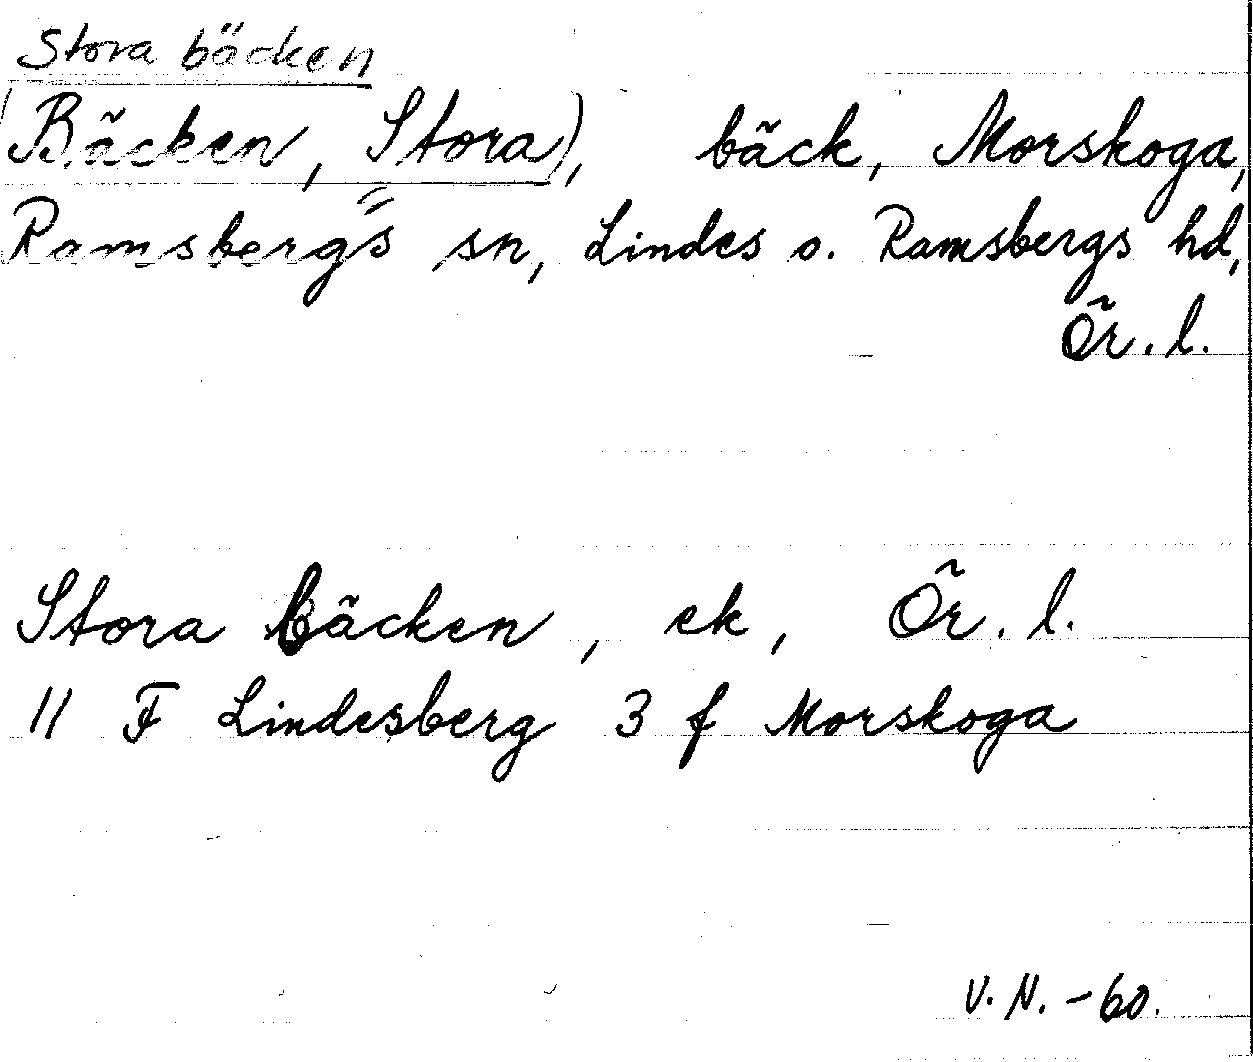 Stora bäcken
(Bäcken, Stora), bäck, Morskoga,
Ramsbergs sn, Lindes o. Ramsbergs hd,
Ör. l.
Stora bäcken, ek, Ör. l.
11 F Lindesberg 3 f Morskoga
V. N. -60.